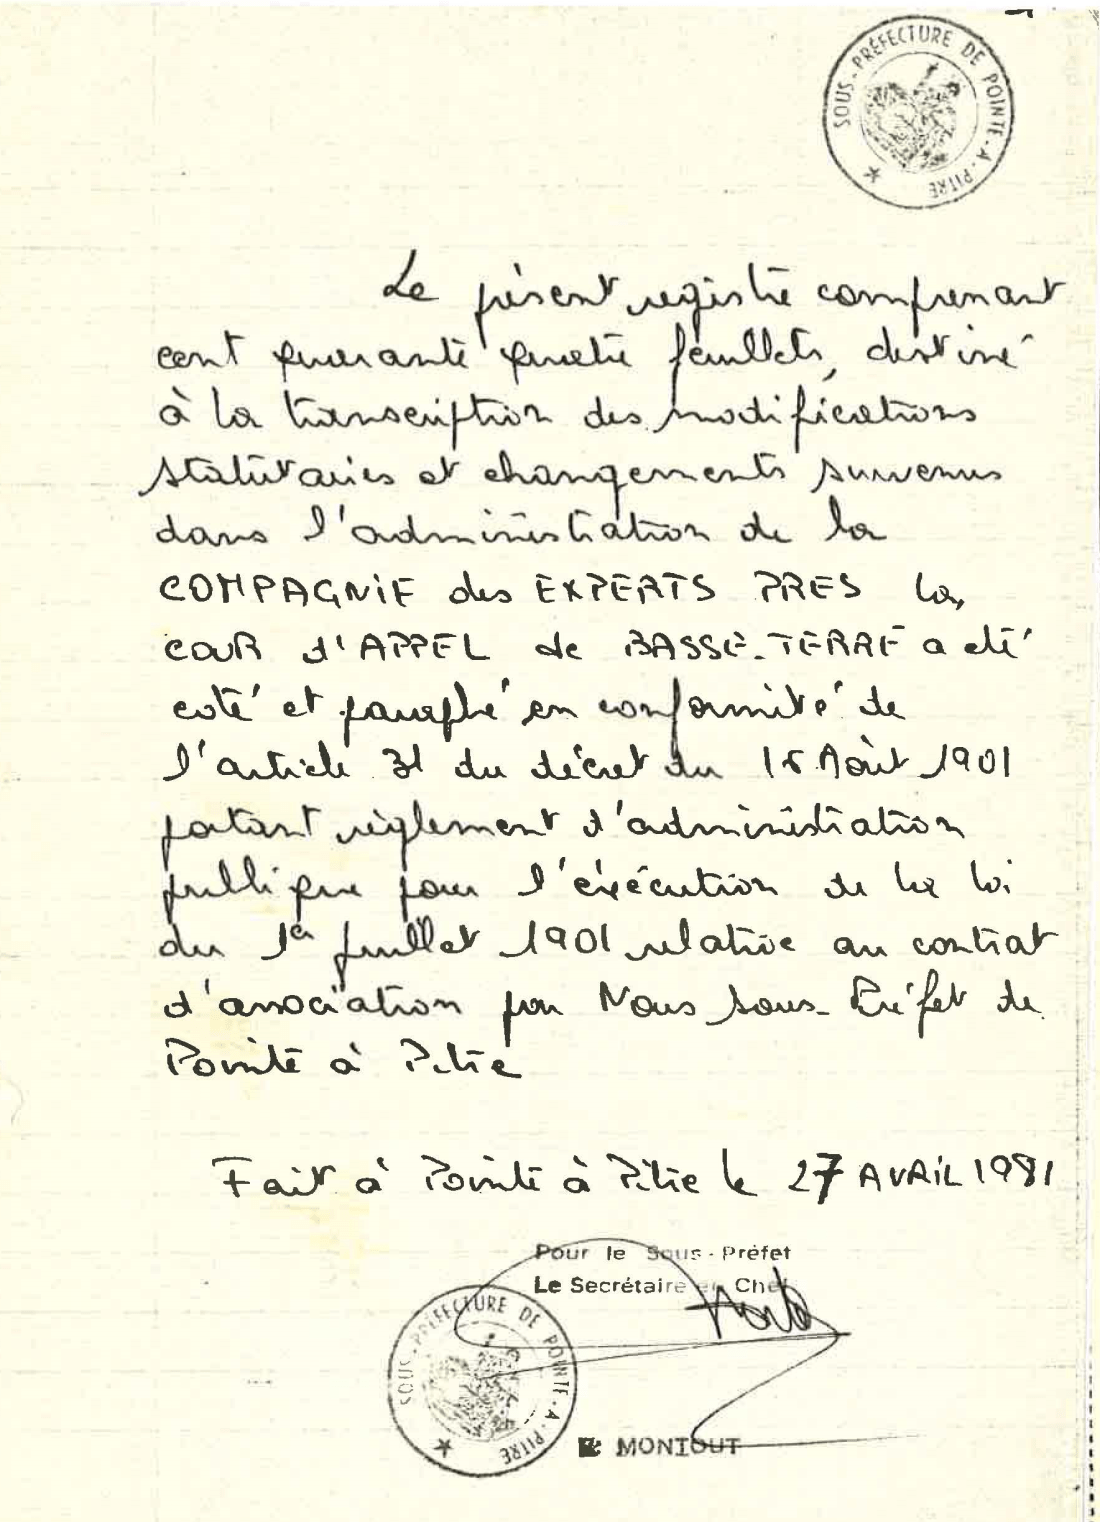 SOUS-PRÉFECTURE DE POINTE-A-PITRE
Le présent registre comprenant
cent quarante quatre feuillets, destiné
à la transcription des modifications
statutaires et changements survenus
dans l'administration de la
COMPAGNIE des EXPERTS PRES la
COUR d'APPEL de BASSE-TERRE a été
coté et paraphé en conformité de
l'article 31 du décret du 16 Août 1901
portant règlement d'administration
publique pour l'éxécution de la loi
du 1er juillet 1901 relative au contrat
d'association par Nous Sous-Préfet de
Pointe à Pitre
Fait à Pointe à Pitre le 27 AVRIL 1981
Pour le Sous-Préfet
Le Secrétaire en Chef
SOUS-PRÉFECTURE DE POINTE-A-PITRE
MONTOUT